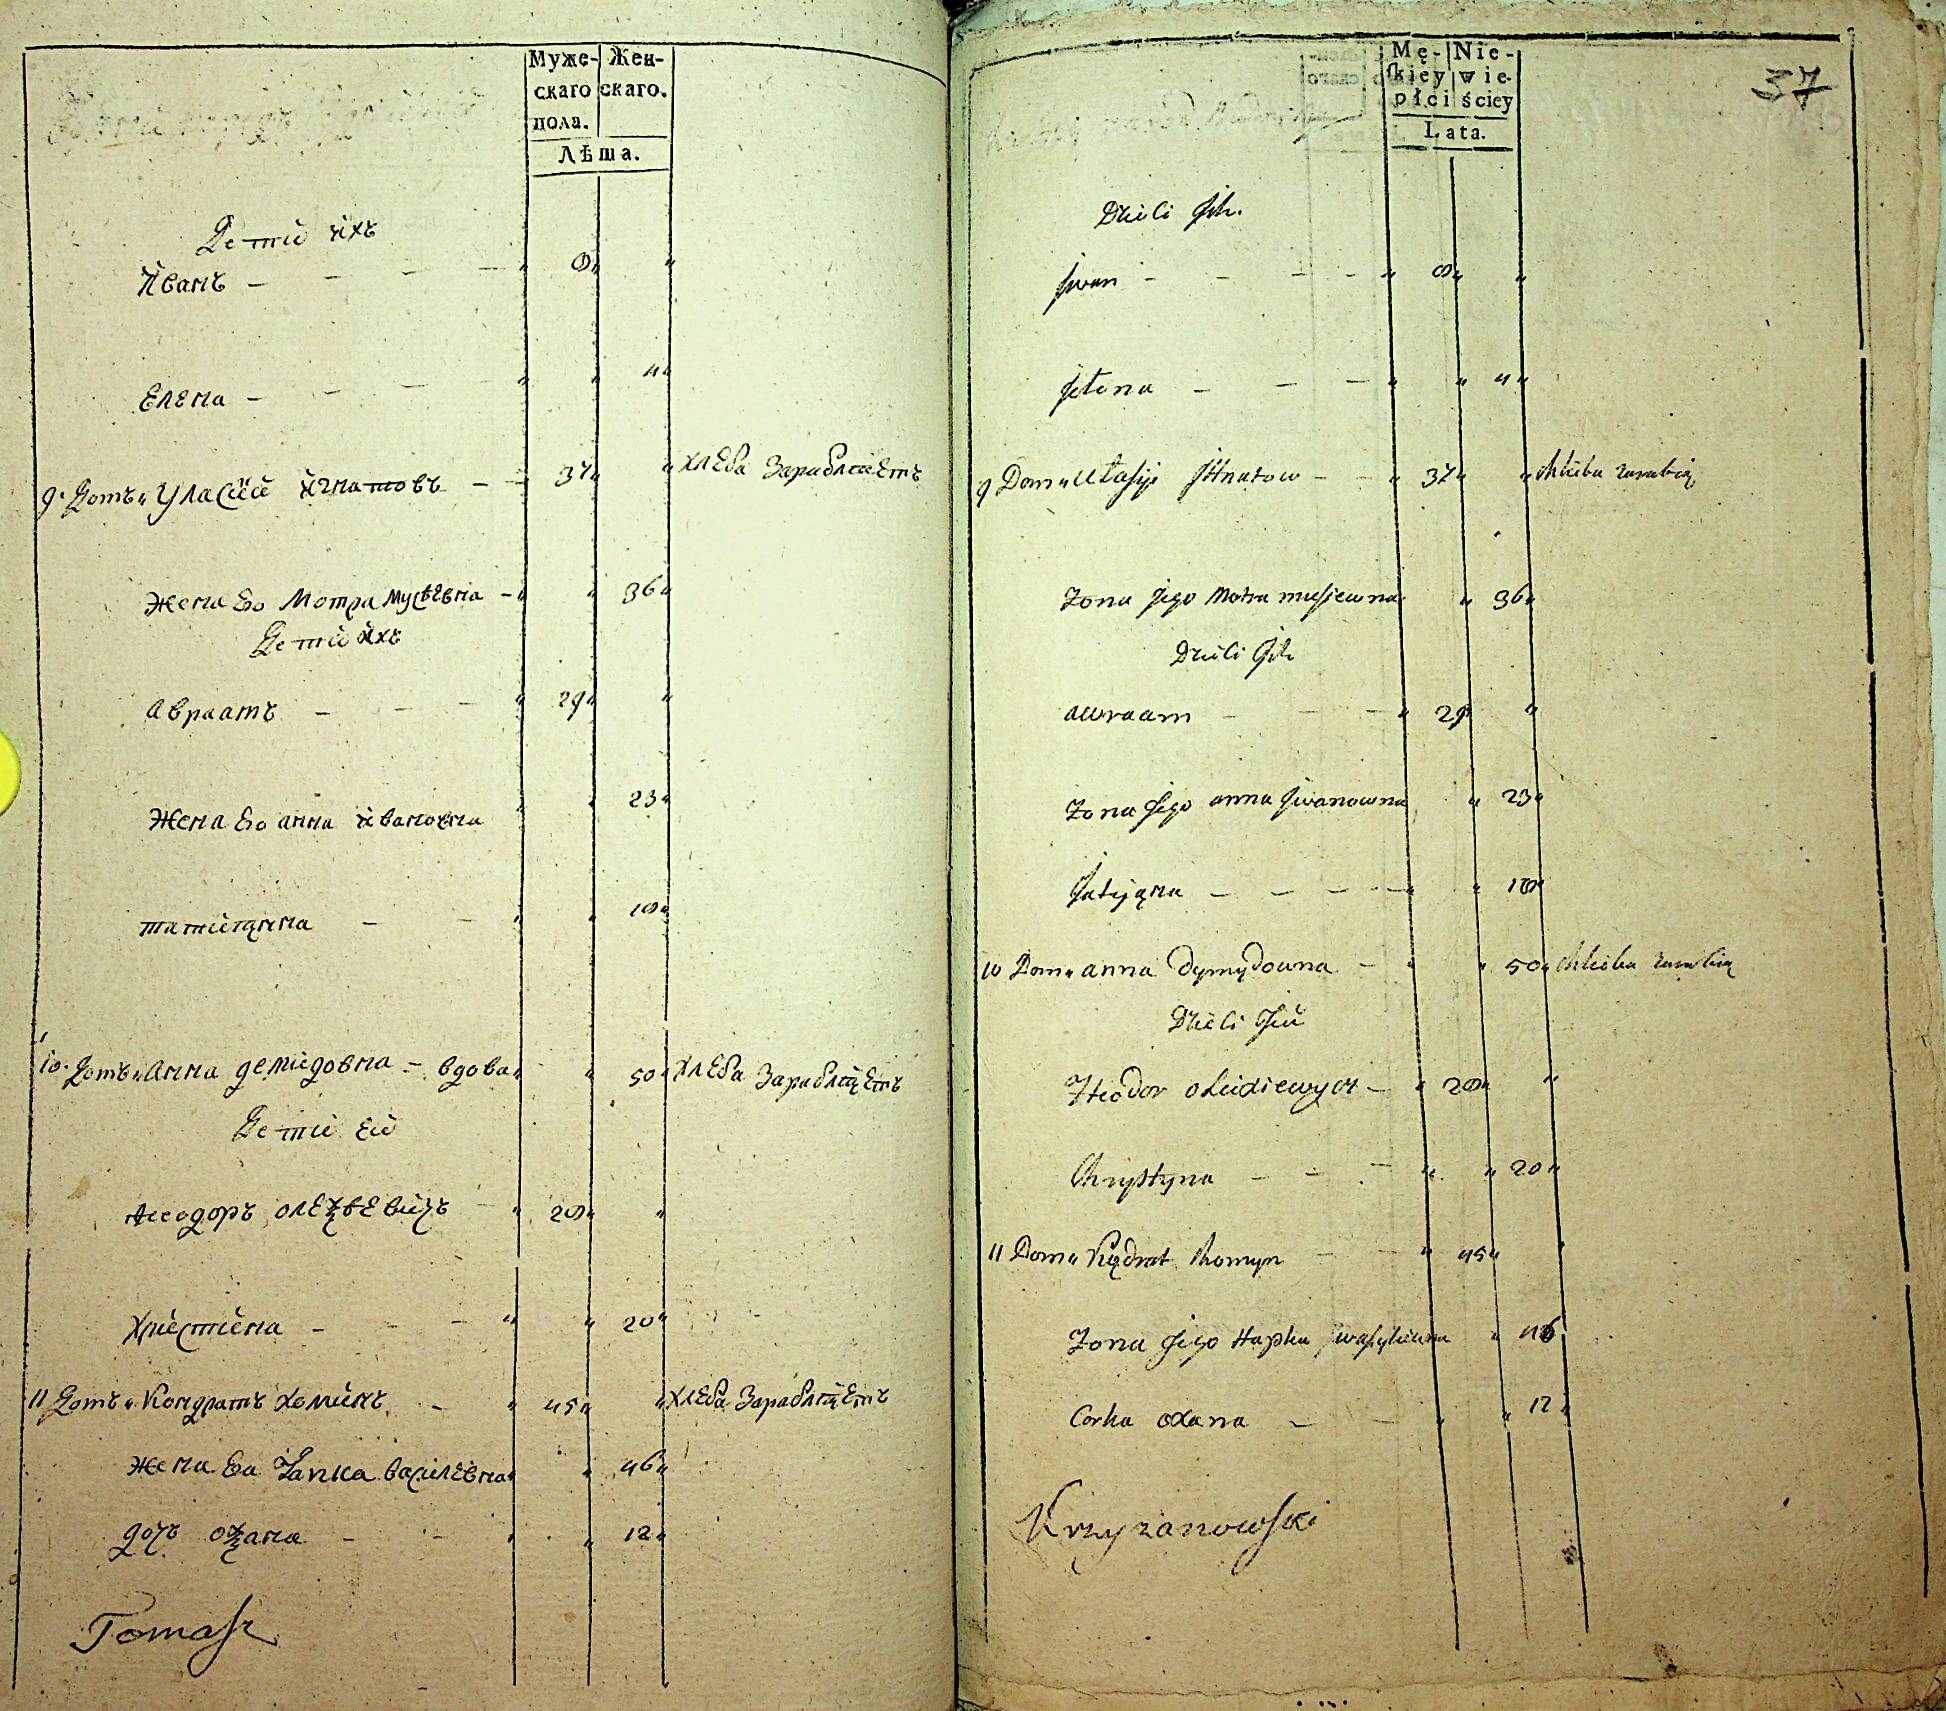 Муже-
скаго
пола.
Жен-
скаго.
Лѣта.
Дети ихъ
Иванъ - - - - " 8 " "
Елена - - - - " " 4 "
9. Домъ " Уласий игнатовъ - - 37 " " хлеба Зараблаетъ
Жена Ево Мотра мусѣевна - " " 36 "
Дети ихъ
авраамъ - - - " 29 " "
Жена Ево анна ивановна " " 23 "
татиянна - - " " 18 "
10. Домъ " Анна демидовна - вдова " " 50 " хлеба Зарабляетъ
Дети Еи
Ѳеодоръ олеѯѣевичъ - " 28 " "
христина - - - " " 20 "
11 Домъ " Кондратъ хоминъ - " 45 " " хлеба Зарабляетъ
Жена Ева Гапка василевна " " 46 "
дочъ оѯана - - " " 12 "
Tomasz
37
Mę-
skiey
płci
Nie-
wie-
ściey
Lata.
Dzieci Jch.
Jwan - - - - " 8 " "
Jełena - - - " " 4 "
9 Dom " Ułasiji JHnatow - - " 37 " " chlieba zarabia
Żona Jego Motra musiewna " 36 "
Dzieci Jch
awraam - - - " 29 "
Żona Jego anna Jwanowna " 23 "
Tatijana - - - - " " 18 "
10 Dom " anna Dymydowna - " " 50 " chlieba zarabia
Dzieci Jeii
Fteodor olexiewycz - " 28 " "
Chrystyna - - - " " 20 "
11 Dom " Kądrat Chomyn - - " 45 " "
Żona Jego Hapka wasylewna " 46
Corka oxana - - " " 12 "
Krzyzanowski